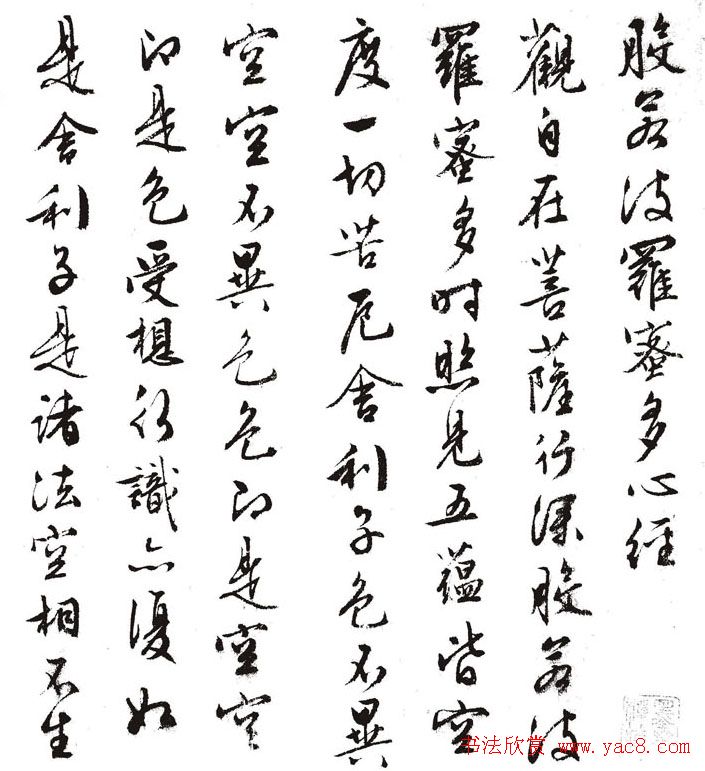 般若波羅蜜多心經
觀自在菩薩行深般若波
羅蜜多時照見五蘊皆空
度一切苦厄舍利子色不異
空空不異色色即是空空
即是色受想行識亦復如
是舍利子是諸法空相不生
书法欣赏 www.yac8.com